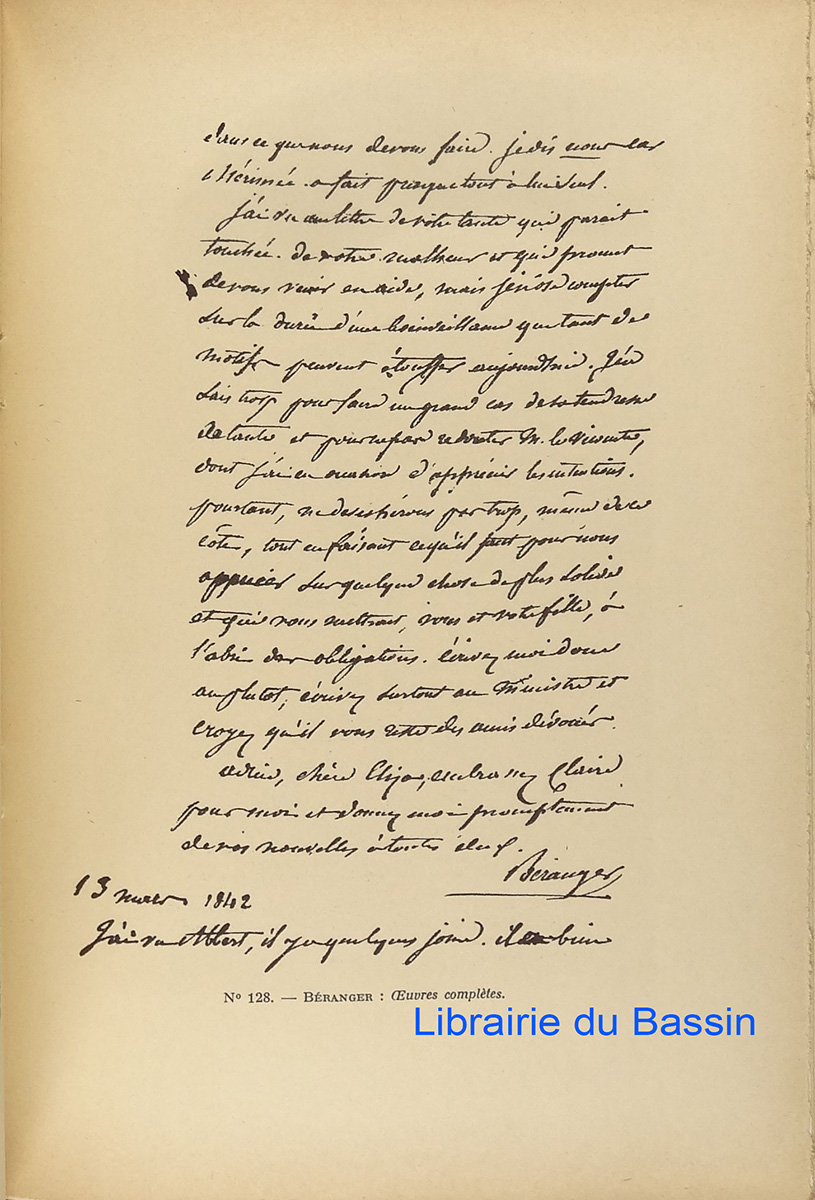 dans ce que nous devons faire. je dis nous car
Mérimée a fait presque tout à lui seul.
J'ai vu une lettre de votre tante qui parait
touchée de votre malheur et qui promet
de vous venir en aide, mais je n'ose compter
sur la durée d'une bienveillance que tant de
motifs peuvent étouffer aujourd'hui. J'en
sais trop pour faire un grand cas de sa tendresse
de tante et pour ne pas redouter M. le Vicomte,
dont j'ai eu occasion d'apprécier les intentions.
pourtant, ne desespérons pas trop, même de ce
côté, tout en faisant ce qu'il faut pour nous
appuier sur quelque chose de plus solide
et qui vous mettrait, vous et votre fille, à
l'abri des obligations. écrivez moi donc
au plutot, écrivez surtout au Ministre et
croyez qu'il vous reste des amis dévoués.
adieu, chère Eliza, embrassez Claire
pour moi et donnez moi promptement
de vos nouvelles à toutes deux.
Béranger
13 mars 1842
J'ai vu Albert, il y a quelques jours. il est bien
N° 128. — BÉRANGER : Œuvres complètes.
Librairie du Bassin